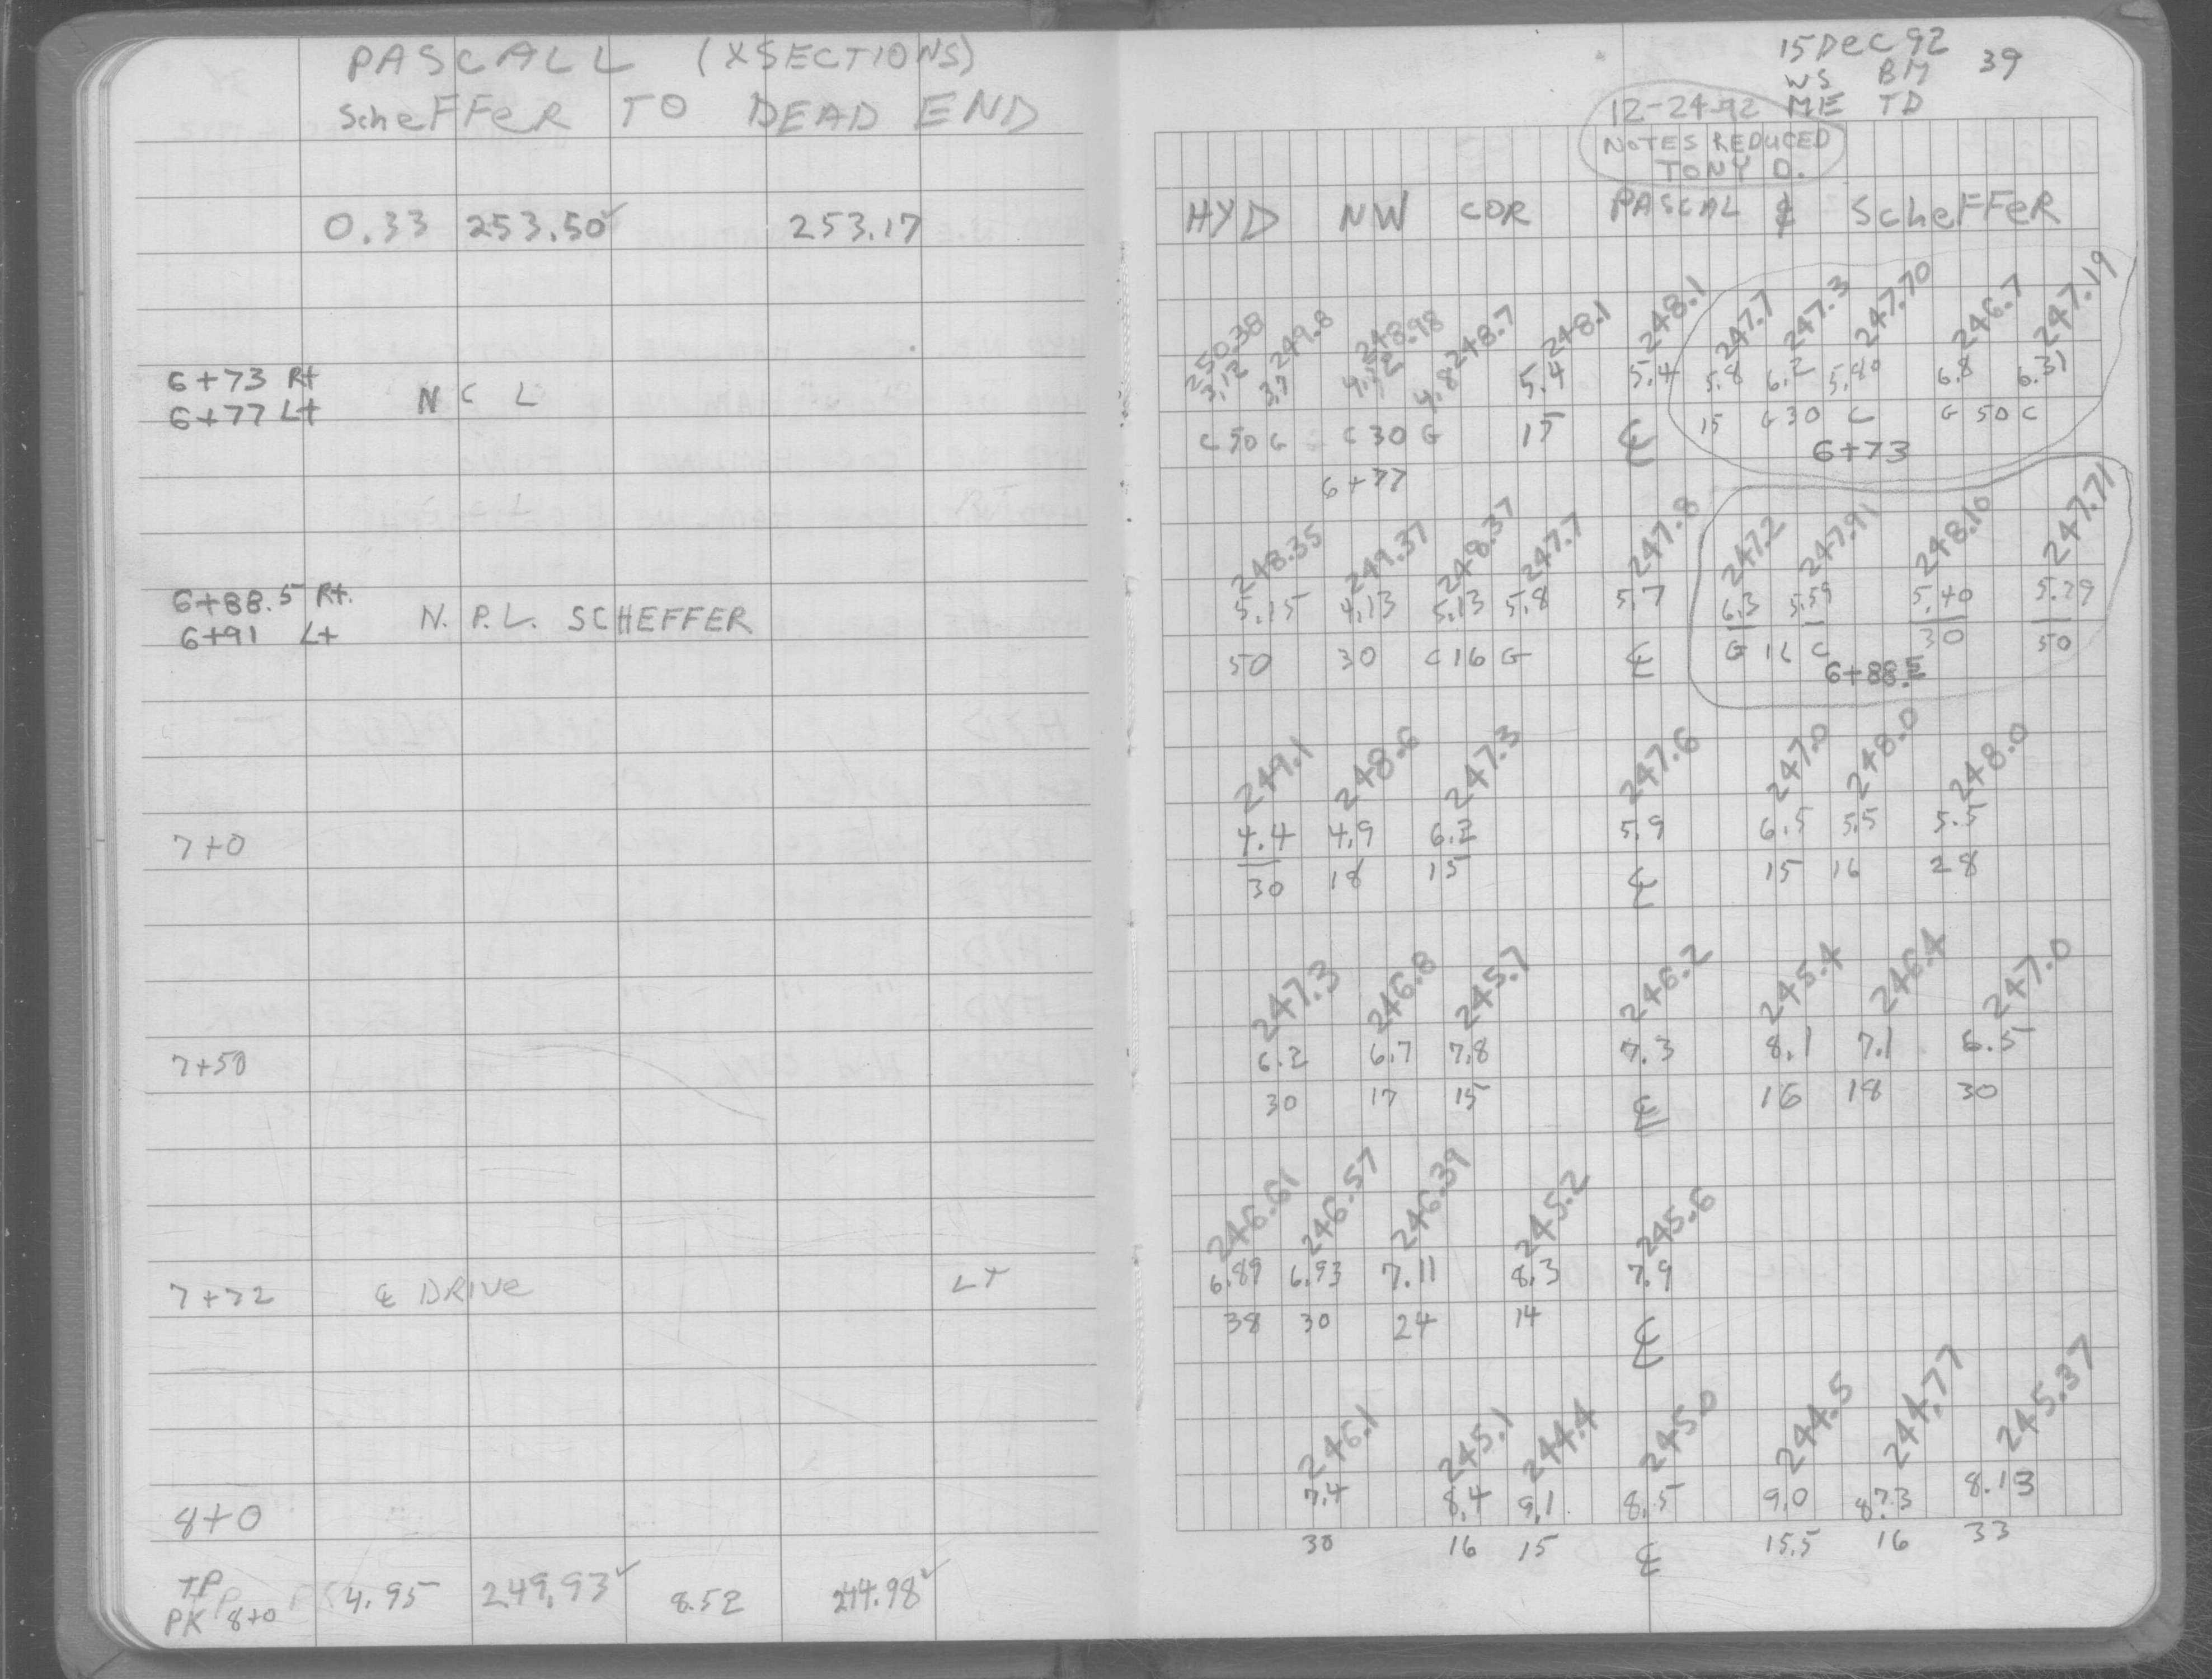 PASCALL (XSECTIONS)
ScheFFeR TO DEAD END
0.33 253.50✓ 253.17
6+73 Rt
6+77 Lt
N C L
6+88.5 Rt.
6+91 Lt
N. P. L. SCHEFFER
7+0
7+50
7+72 ℄ DRIVe LT
8+0
TP
PK 8+0 4.95 249.93✓ 8.52 244.98✓
15 Dec 92 39
WS BM
12-24-92 ME TD
NOTES REDUCED
TONY D.
HYD NW COR PASCAL ℄ ScheFFeR
250.38 249.8 248.98 248.7 248.1 248.1 247.7 247.3 247.70 246.7 247.19
3.12 3.7 4.52 4.8 5.4 5.4 5.8 6.2 5.80 6.8 6.31
C 50 G C 30 G 15 ℄ 15 G 30 C G 50 C
6+77 6+73
248.35 249.37 248.37 247.7 247.8 247.2 247.91 248.10 247.71
5.15 4.13 5.13 5.8 5.7 6.3 5.59 5.40 5.79
50 30 C 16 G ℄ G 16 C 30 50
6+88.5
249.1 248.6 247.3 247.6 247.0 248.0 248.0
4.4 4.9 6.2 5.9 6.5 5.5 5.5
30 18 15 ℄ 15 16 28
247.3 246.8 245.7 246.2 245.4 246.4 247.0
6.2 6.7 7.8 7.3 8.1 7.1 6.5
30 17 15 ℄ 16 18 30
246.61 246.57 246.39 245.2 245.6
6.89 6.93 7.11 8.3 7.9
38 30 24 14 ℄
246.1 245.1 244.4 245.0 244.5 244.77 245.37
7.4 8.4 9.1 8.5 9.0 8.73 8.13
30 16 15 ℄ 15.5 16 33